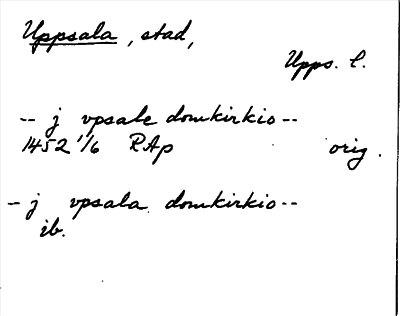 Uppsala, stad,
Upps. l.
-- j vpsale domkirkio --
1452 1/6 RAp orig.
- j vpsala domkirkio --
ib.